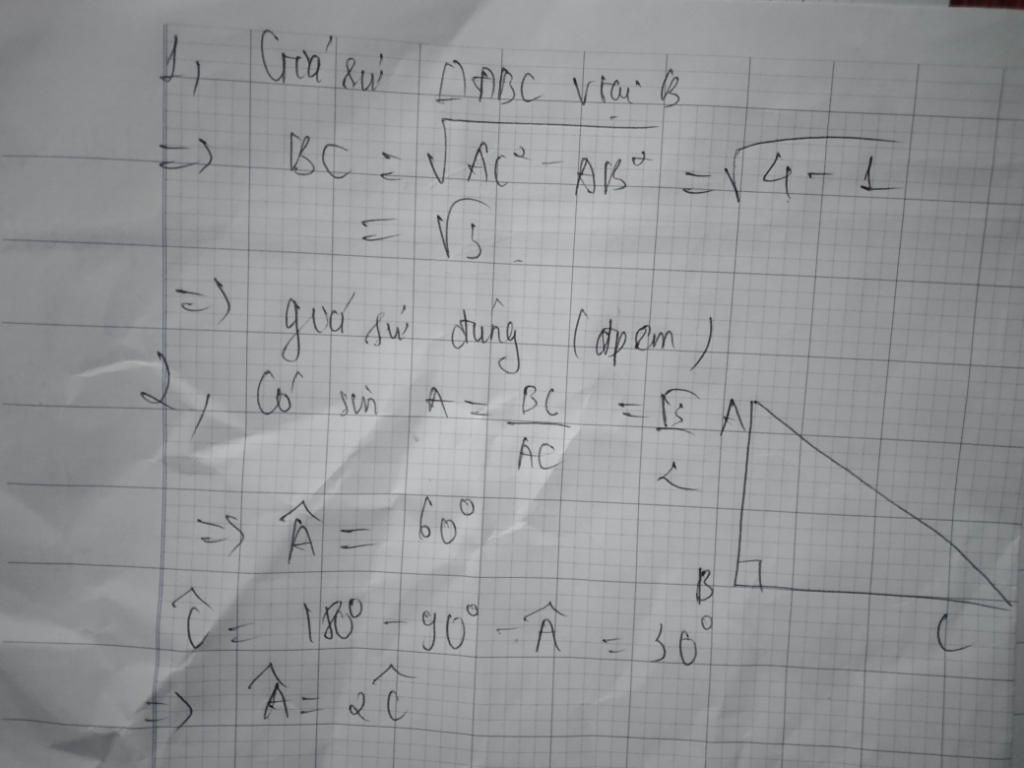 1, Giả sử ΔABC v tại B
=> BC = √(AC² - AB²) = √(4 - 1)
= √3
=> giả sử đúng (đpcm)
2, Có sin A = BC/AC = √3/2
=> Â = 60°
Ĉ = 180° - 90° - Â = 30°
=> Â = 2Ĉ
A
B
C